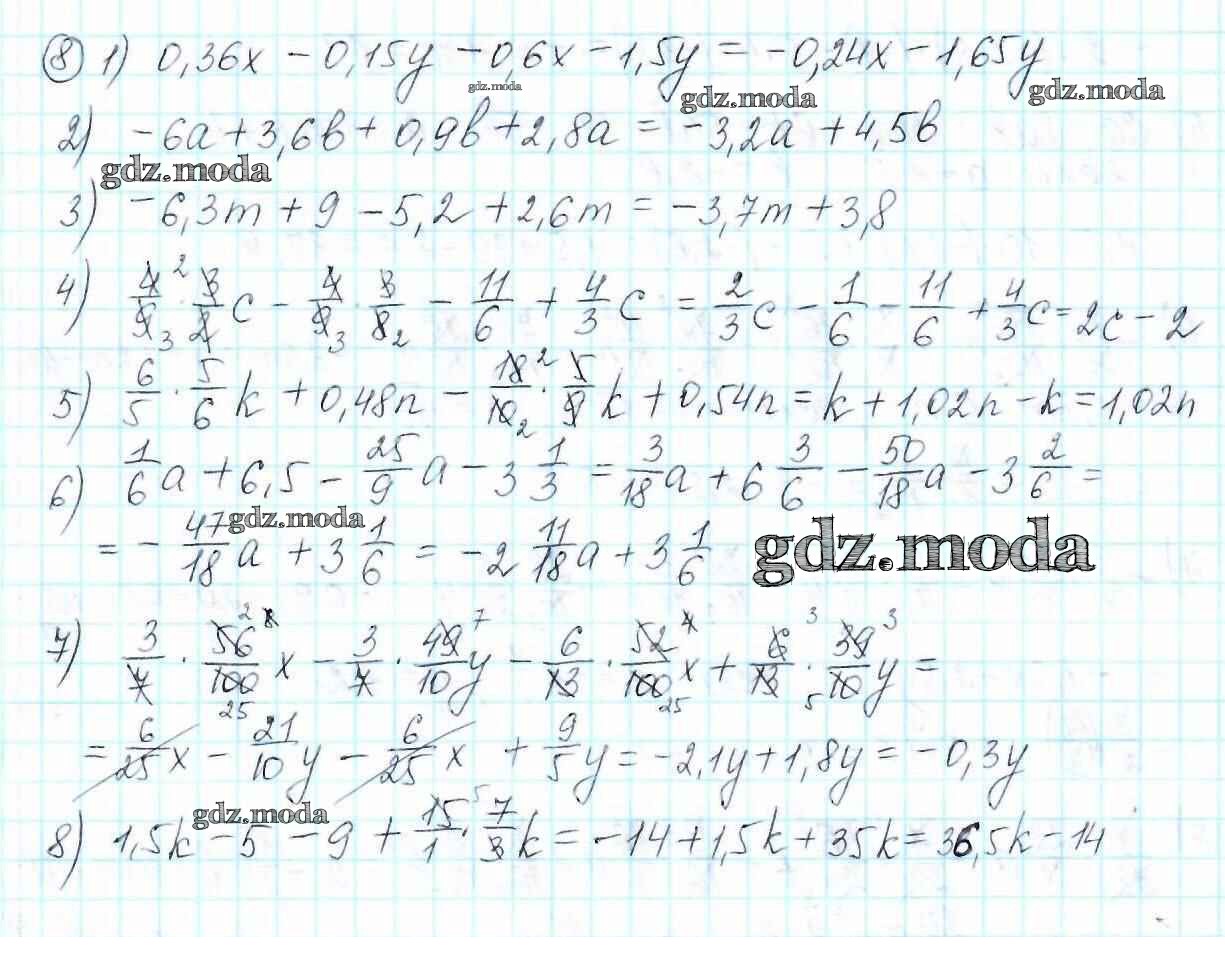 ⑧ 1) 0,36x - 0,15y - 0,6x - 1,5y = -0,24x - 1,65y
gdz.moda gdz.moda gdz.moda
2) -6a + 3,6b + 0,9b + 2,8a = -3,2a + 4,5b
gdz.moda
3) -6,3m + 9 - 5,2 + 2,6m = -3,7m + 3,8
4) 4/9 3 2 · 3/2 c - 4/9 3 · 3/8 2 - 11/6 + 4/3 c = 2/3 c - 1/6 - 11/6 + 4/3 c = 2c - 2
5) 6/5 · 5/6 k + 0,48n - 18/10 2 2 · 5/9 k + 0,54n = k + 1,02n - k = 1,02n
6) 1/6 a + 6,5 - 25/9 a - 3 1/3 = 3/18 a + 6 3/6 - 50/18 a - 3 2/6 =
gdz.moda
= - 47/18 a + 3 1/6 = -2 11/18 a + 3 1/6
gdz.moda
7) 3/7 · 56/100 2 8 25 x - 3/7 · 49/10 7 y - 6/13 · 52/100 4 25 x + 6/13 3 · 39/10 3 5 y =
= 6/25 x - 21/10 y - 6/25 x + 9/5 y = -2,1y + 1,8y = -0,3y
gdz.moda
8) 1,5k - 5 - 9 + 15/1 5 · 7/3 k = -14 + 1,5k + 35k = 36,5k - 14